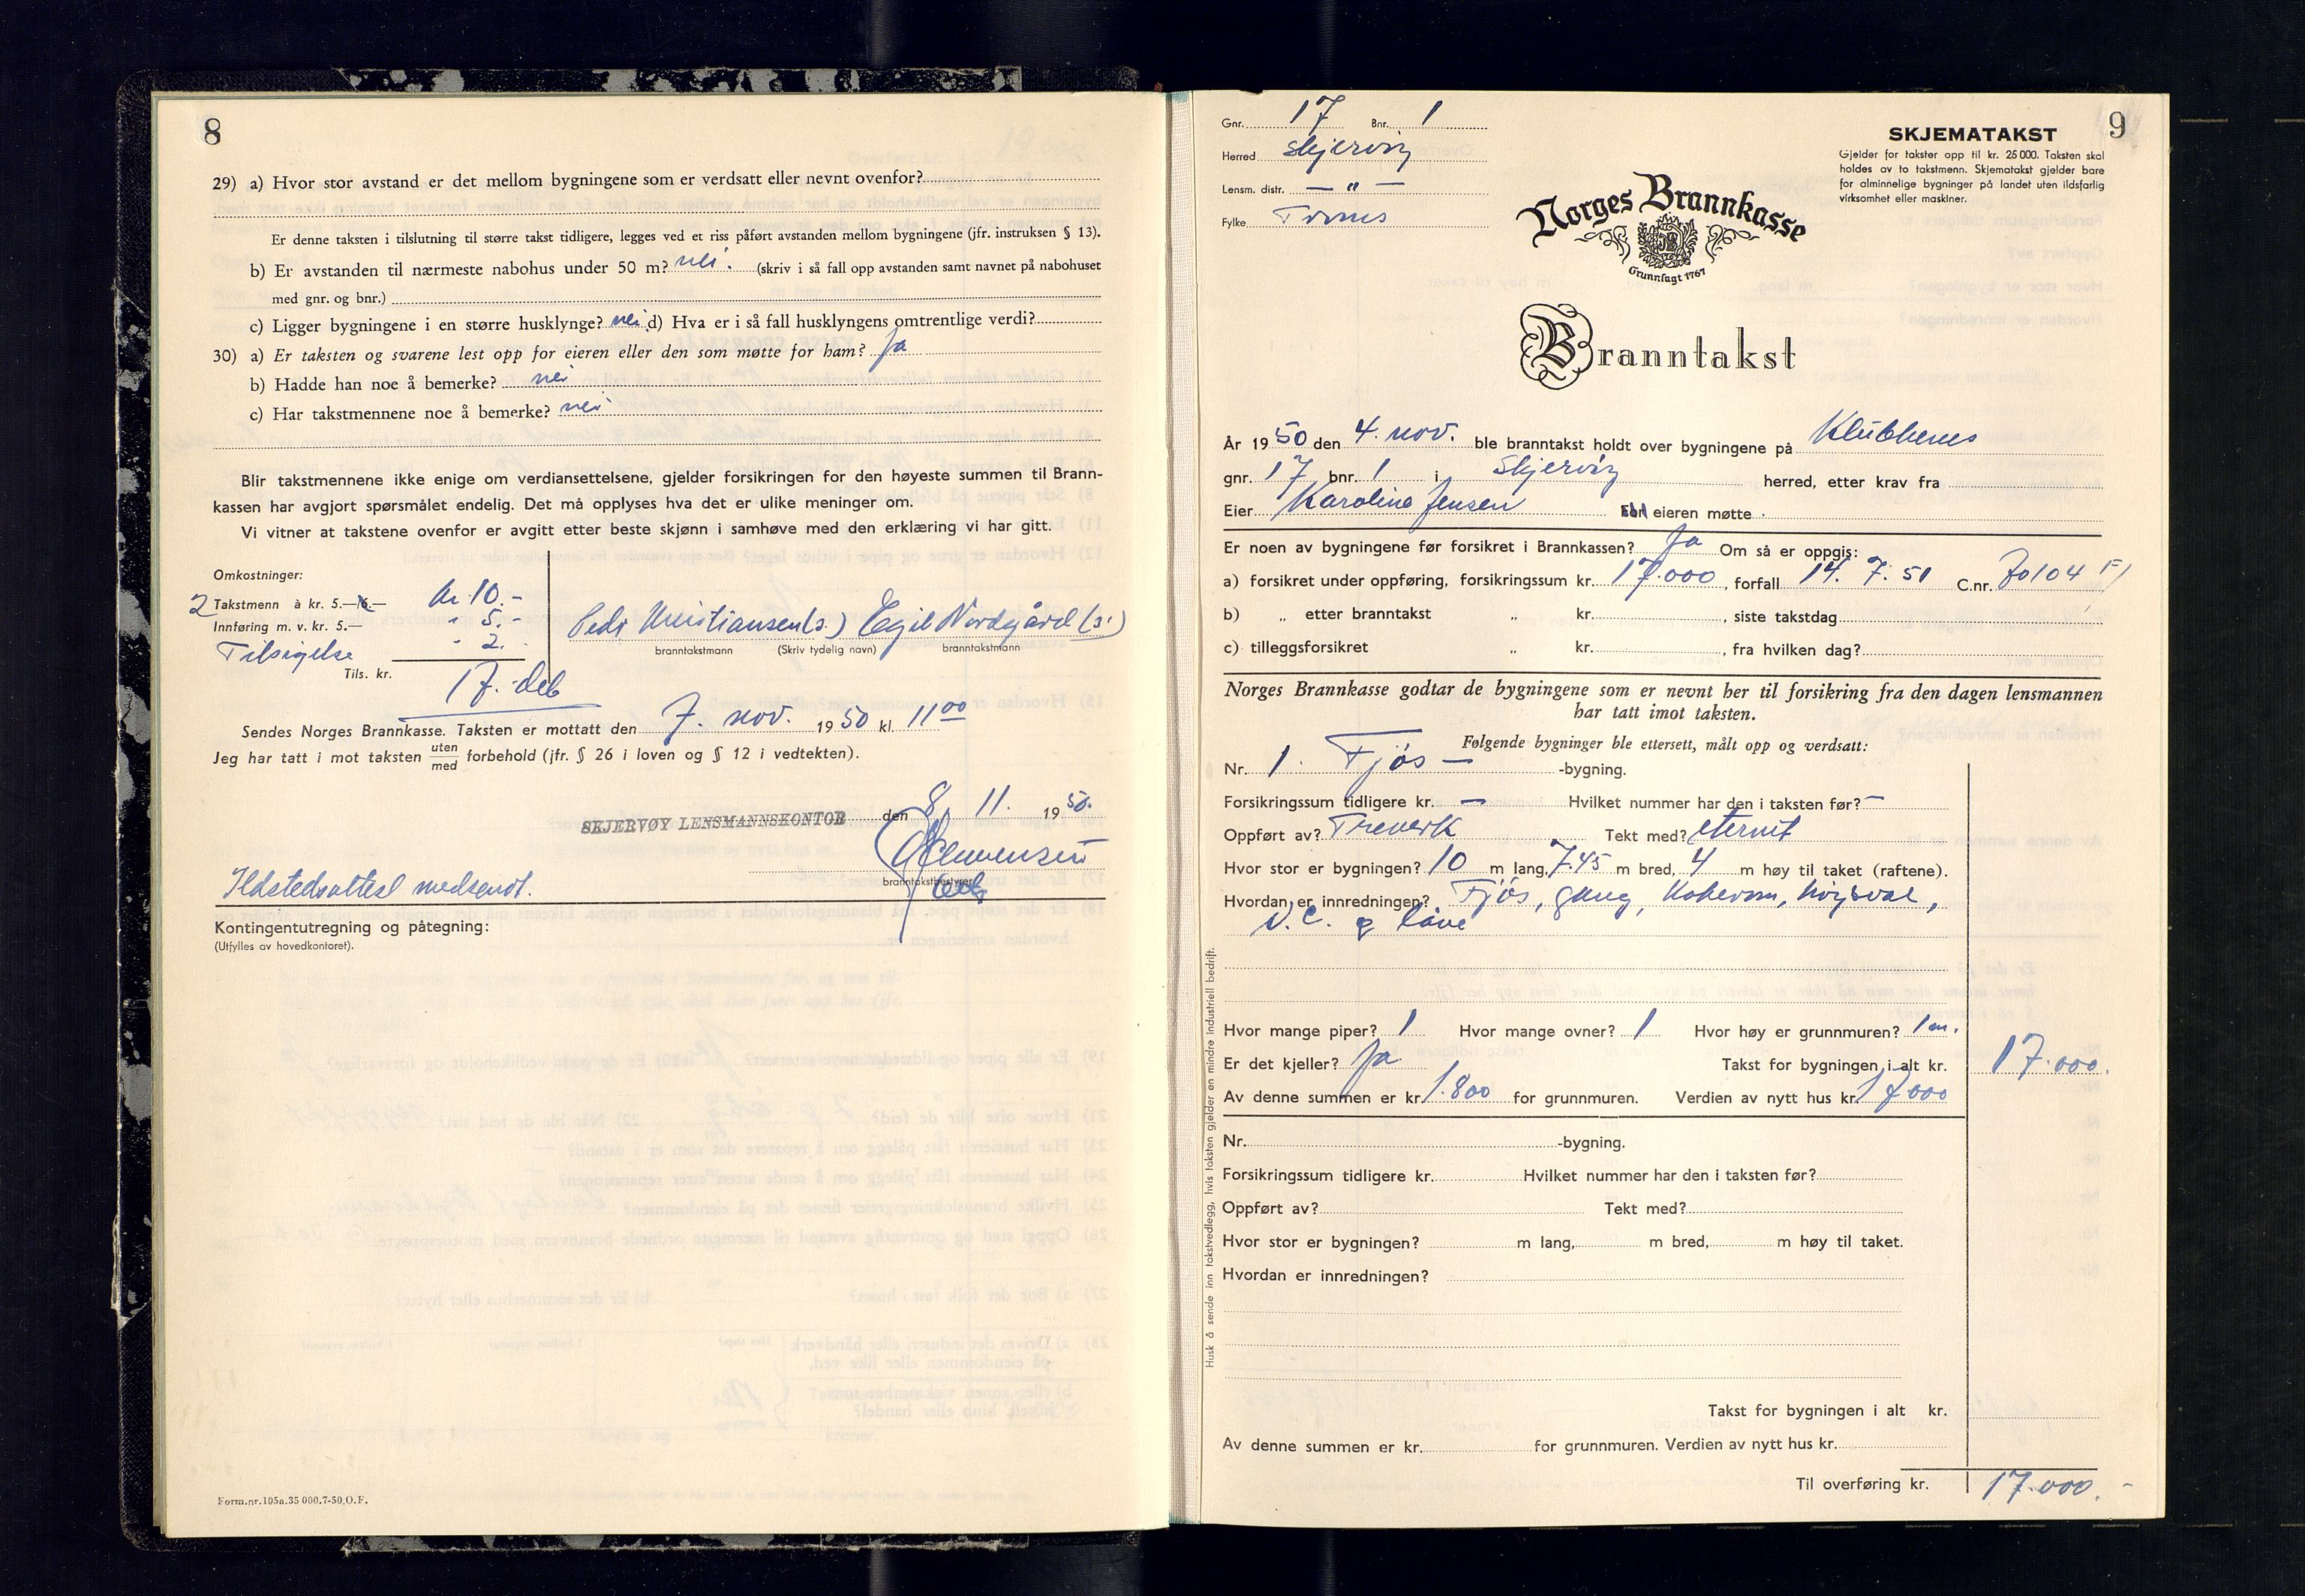 8
29) a) Hvor stor avstand er det mellom bygningene som er verdsatt eller nevnt ovenfor?
Er denne taksten i tilslutning til større takst tidligere, legges ved et riss påført avstanden mellom bygningene (jfr. instruksen § 13).
b) Er avstanden til nærmeste nabohus under 50 m? nei. (skriv i så fall opp avstanden samt navnet på nabohuset
med gnr. og bnr.)
c) Ligger bygningene i en større husklynge? nei d) Hva er i så fall husklyngens omtrentlige verdi?
30) a) Er taksten og svarene lest opp for eieren eller den som møtte for ham? Ja
b) Hadde han noe å bemerke? nei
c) Har takstmennene noe å bemerke? nei
Blir takstmennene ikke enige om verdiansettelsene, gjelder forsikringen for den høyeste summen til Brann-
kassen har avgjort spørsmålet endelig. Det må opplyses hva det er ulike meninger om.
Vi vitner at takstene ovenfor er avgitt etter beste skjønn i samhøve med den erklæring vi har gitt.
Omkostninger:
2 Takstmenn à kr. 5.— kr. 10.-
Innføring m. v. kr. 5.— - 5.-
Tilsigelse - 2.-
Tils. kr. 17.- deb
Peder Kristiansen (s.) Egil Nordgård (s.)
branntakstmann (Skriv tydelig navn) branntakstmann
Sendes Norges Brannkasse. Taksten er mottatt den 7. nov. 1950 kl. 11 00
Jeg har tatt i mot taksten uten med forbehold (jfr. § 26 i loven og § 12 i vedtekten).
SKJERVØY LENSMANNSKONTOR den 8/ 11. 1950.
branntakstbestyrer
Ildstedsattest medsendt.
Kontingentutregning og påtegning:
(Utfylles av hovedkontoret).
Form.nr.105a.35 000.7-50.O.F.
9
Gnr. 17 Bnr. 1
Herred Skjervøy
Lensm. distr. — " —
Fylke Troms
SKJEMATAKST
Gjelder for takster opp til kr. 25 000. Taksten skal
holdes av to takstmenn. Skjematakst gjelder bare
for alminnelige bygninger på landet uten ildsfarlig
virksomhet eller maskiner.
Norges Brannkasse
Grunnlagt 1767
Branntakst
År 1950 den 4. nov. ble branntakst holdt over bygningene på Klubbenes
gnr. 17 bnr. 1 i Skjervøy herred, etter krav fra
Eier Karoline Jensen eieren møtte
Er noen av bygningene før forsikret i Brannkassen? Ja Om så er oppgis:
a) forsikret under oppføring, forsikringssum kr. 17.000, forfall 14. 7. 51 C.nr. 70104
b) „ etter branntakst „ kr. , siste takstdag
c) tilleggsforsikret „ kr. , fra hvilken dag?
Norges Brannkasse godtar de bygningene som er nevnt her til forsikring fra den dagen lensmannen
har tatt imot taksten.
Følgende bygninger ble ettersett, målt opp og verdsatt:
Nr. 1. Fjøs — -bygning.
Forsikringssum tidligere kr. — Hvilket nummer har den i taksten før? —
Oppført av? Treverk Tekt med? eternit
Hvor stor er bygningen? 10 m lang, 7.45 m bred, 4 m høy til taket (raftene).
Hvordan er innredningen? Fjøs, gang, kokerom, høysval,
V.C. og låve
Hvor mange piper? 1 Hvor mange ovner? 1 Hvor høy er grunnmuren? 1 m.
Er det kjeller? Ja Takst for bygningen i alt kr. 17.000.
Av denne summen er kr. 1.800 for grunnmuren. Verdien av nytt hus kr. 17000
Nr. -bygning.
Forsikringssum tidligere kr. Hvilket nummer har den i taksten før?
Oppført av? Tekt med?
Hvor stor er bygningen? m lang, m bred, m høy til taket.
Hvordan er innredningen?
Takst for bygningen i alt kr.
Av denne summen er kr. for grunnmuren. Verdien av nytt hus kr.
Til overføring kr. 17.000.-
Husk å sende inn takstvedlegg, hvis taksten gjelder en mindre industriell bedrift.